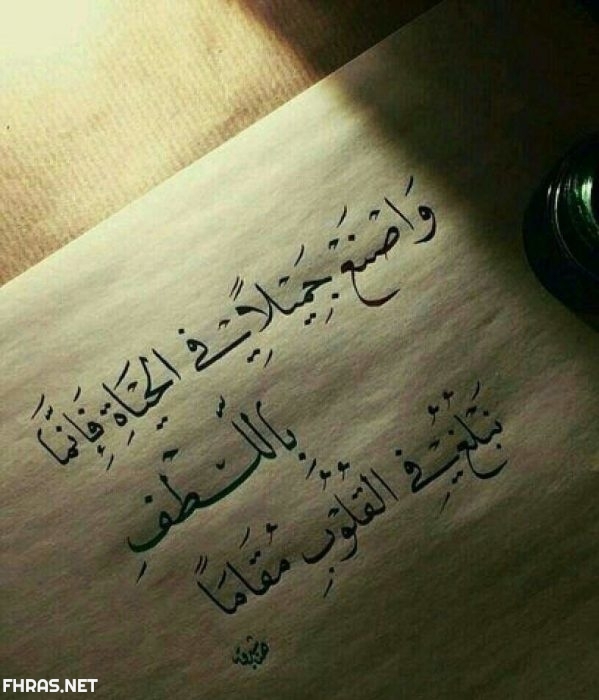 وَاصْنَعْ جَمِيْلاً فِي الْحَيَاةِ فَإِنَّمَا
بِاللُّطْفِ
نَبْلُغُ فِي الْقُلُوْبِ مُقَامَاً
FHRAS.NET